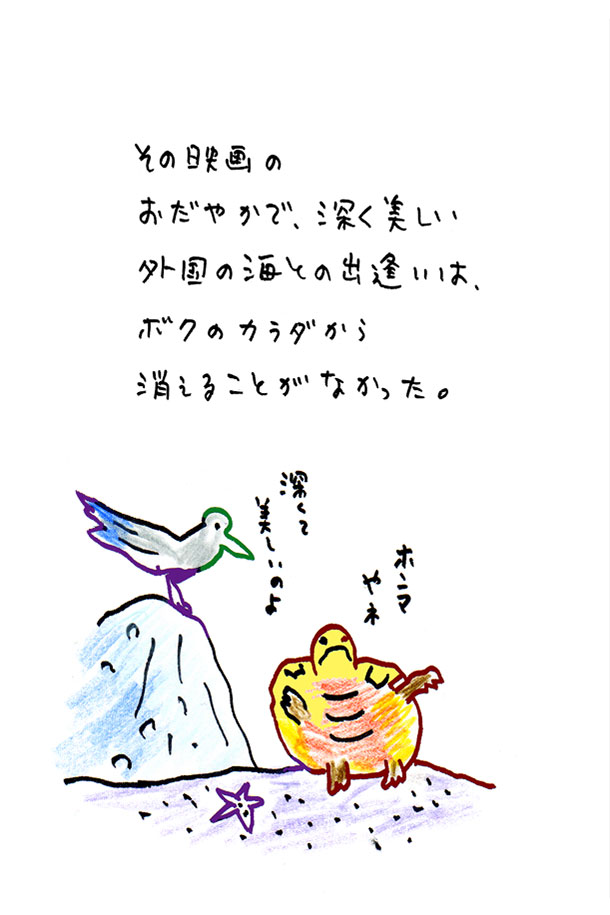 その映画の
おだやかで、深く美しい
外国の海との出逢いは、
ボクのカラダから
消えることがなかった。
深くて
美しいのよ
ホンマ
やネ